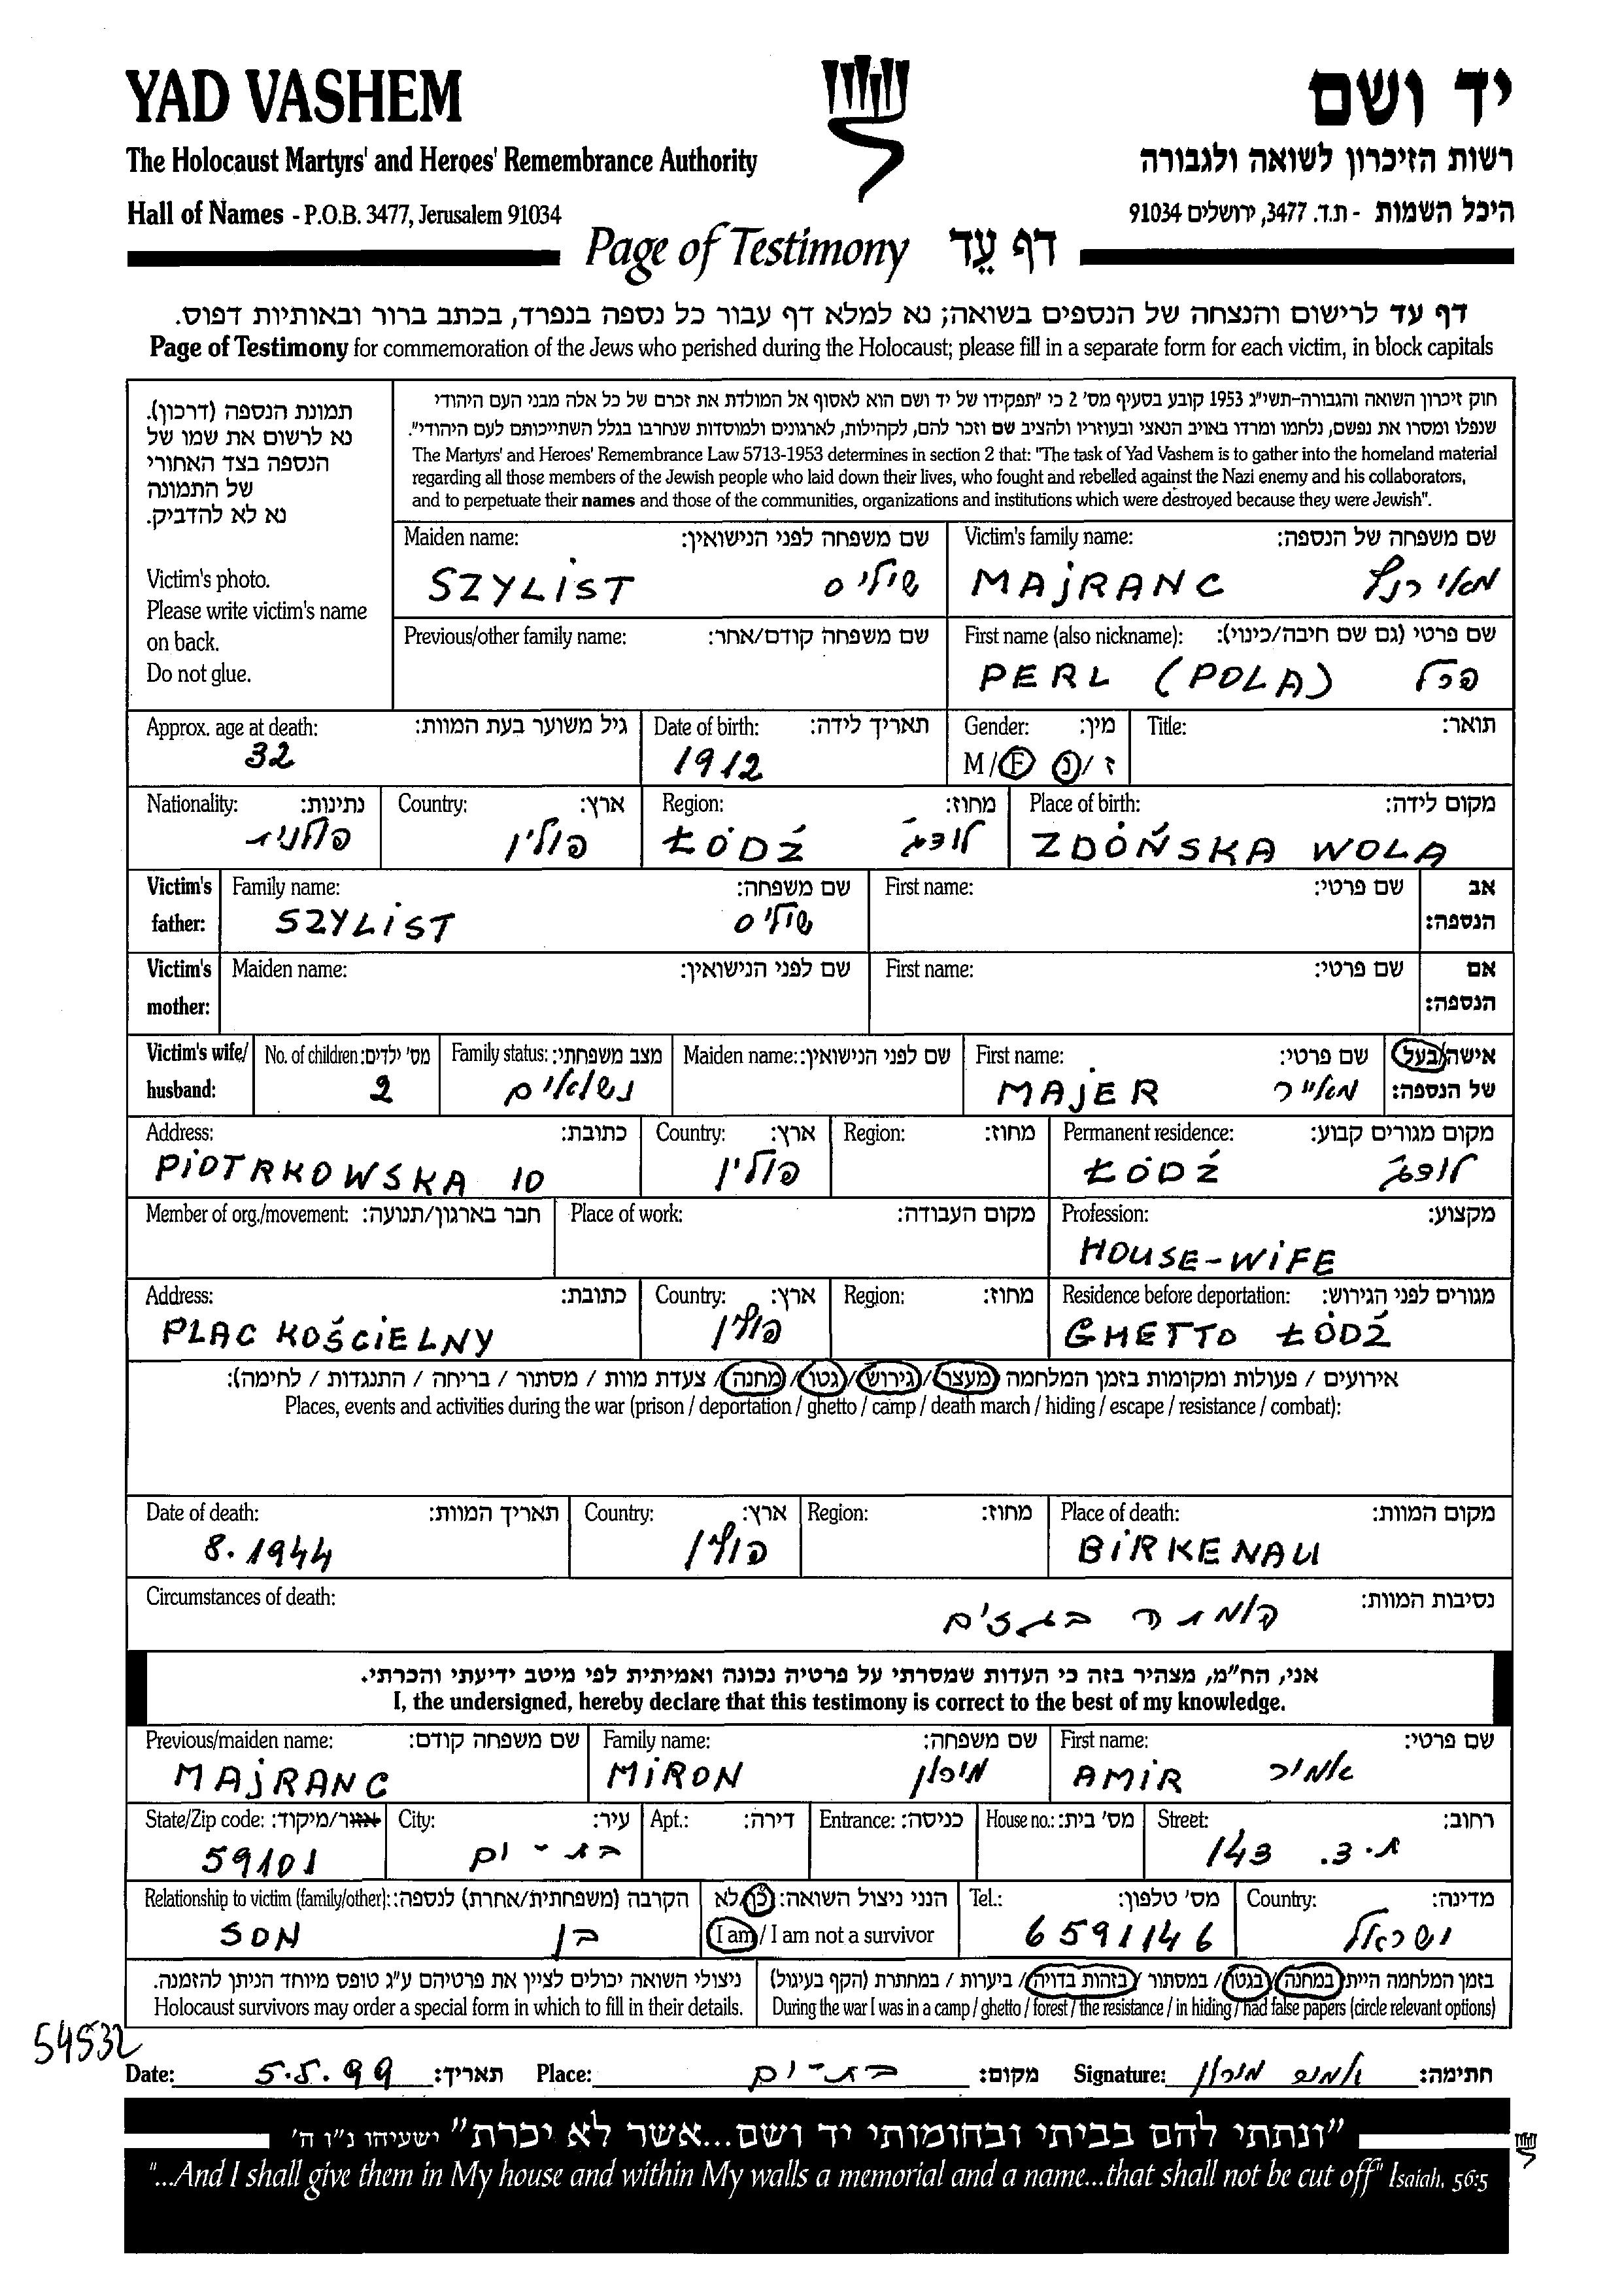 YAD VASHEM יד ושם
The Holocaust Martyrs' and Heroes' Remembrance Authority רשות הזיכרון לשואה ולגבורה
Hall of Names - P.O.B. 3477, Jerusalem 91034 היכל השמות - ת.ד. 3477, ירושלים 91034
Page of Testimony דף עֵד
דף עד לרישום והנצחה של הנספים בשואה; נא למלא דף עבור כל נספה בנפרד, בכתב ברור ובאותיות דפוס.
Page of Testimony for commemoration of the Jews who perished during the Holocaust; please fill in a separate form for each victim, in block capitals
תמונת הנספה (דרכון).
נא לרשום את שמו של
הנספה בצד האחורי
של התמונה
נא לא להדביק.
Victim's photo.
Please write victim's name
on back.
Do not glue.
חוק זיכרון השואה והגבורה-תשי"ג 1953 קובע בסעיף מס' 2 כי "תפקידו של יד ושם הוא לאסוף אל המולדת את זכרם של כל אלה מבני העם היהודי
שנפלו ומסרו את נפשם, נלחמו ומרדו באויב הנאצי ובעוזריו ולהציב שם וזכר להם, לקהילות, לארגונים ולמוסדות שנחרבו בגלל השתייכותם לעם היהודי".
The Martyrs' and Heroes' Remembrance Law 5713-1953 determines in section 2 that: "The task of Yad Vashem is to gather into the homeland material
regarding all those members of the Jewish people who laid down their lives, who fought and rebelled against the Nazi enemy and his collaborators,
and to perpetuate their names and those of the communities, organizations and institutions which were destroyed because they were Jewish".
Maiden name: שם משפחה לפני הנישואין: Victim's family name: שם משפחה של הנספה:
SZYLIST שיליס MAJRANC מאירנץ
Previous/other family name: שם משפחה קודם/אחר: First name (also nickname): שם פרטי (גם שם חיבה/כינוי):
PERL (POLA) פרל
Approx. age at death: גיל משוער בעת המוות: Date of birth: תאריך לידה: Gender: מין: Title: תואר:
32 1912 M/F נ/ז
Nationality: נתינות: Country: ארץ: Region: מחוז: Place of birth: מקום לידה:
פולנית פולין ŁÓDŹ לודג' ZDÓŃSKA WOLA
Victim's Family name: שם משפחה: First name: שם פרטי: אב
father: SZYLIST שיליס הנספה:
Victim's Maiden name: שם לפני הנישואין: First name: שם פרטי: אם
mother: הנספה:
Victim's wife/ No. of children: מס' ילדים: Family status: מצב משפחתי: Maiden name: שם לפני הנישואין: First name: שם פרטי: אישה/בעל
husband: 2 נשואים MAJER מאייר של הנספה:
Address: כתובת: Country: ארץ: Region: מחוז: Permanent residence: מקום מגורים קבוע:
PIOTRKOWSKA 10 פולין ŁÓDŹ לודג'
Member of org./movement: חבר בארגון/תנועה: Place of work: מקום העבודה: Profession: מקצוע:
HOUSE-WIFE
Address: כתובת: Country: ארץ: Region: מחוז: Residence before deportation: מגורים לפני הגירוש:
PLAC KOŚCIELNY פולין GHETTO ŁÓDŹ
אירועים / פעולות ומקומות בזמן המלחמה (מעצר/גירוש/גטו/מחנה/ צעדת מוות / מסתור / בריחה / התנגדות / לחימה):
Places, events and activities during the war (prison / deportation / ghetto / camp / death march / hiding / escape / resistance / combat):
Date of death: תאריך המוות: Country: ארץ: Region: מחוז: Place of death: מקום המוות:
8.1944 פולין BIRKENAU
Circumstances of death: נסיבות המוות:
הומתה בגזים
אני, הח"מ, מצהיר בזה כי העדות שמסרתי על פרטיה נכונה ואמיתית לפי מיטב ידיעתי והכרתי.
I, the undersigned, hereby declare that this testimony is correct to the best of my knowledge.
Previous/maiden name: שם משפחה קודם: Family name: שם משפחה: First name: שם פרטי:
MAJRANC MIRON מירון AMIR אמיר
State/Zip code: אזור/מיקוד: City: עיר: Apt.: דירה: Entrance: כניסה: House no.: מס' בית: Street: רחוב:
59101 בת-ים ת.ד. 143
Relationship to victim (family/other): הקרבה (משפחתית/אחרת) לנספה: הנני ניצול השואה: כן/לא Tel.: מס' טלפון: Country: מדינה:
SON בן I am / I am not a survivor 6591146 ישראל
ניצולי השואה יכולים לציין את פרטיהם ע"ג טופס מיוחד הניתן להזמנה. בזמן המלחמה הייתי במחנה/בגטו/ במסתור /בזהות בדויה/ ביערות / במחתרת (הקף בעיגול)
Holocaust survivors may order a special form in which to fill in their details. During the war I was in a camp / ghetto / forest / the resistance / in hiding / had false papers (circle relevant options)
54532
Date: 5.5.99 תאריך: Place: בת-ים מקום: Signature: מירון חתימה:
"ונתתי להם בביתי ובחומותי יד ושם...אשר לא יכרת" ישעיהו נ"ו ה'
"...And I shall give them in My house and within My walls a memorial and a name...that shall not be cut off" Isaiah, 56:5